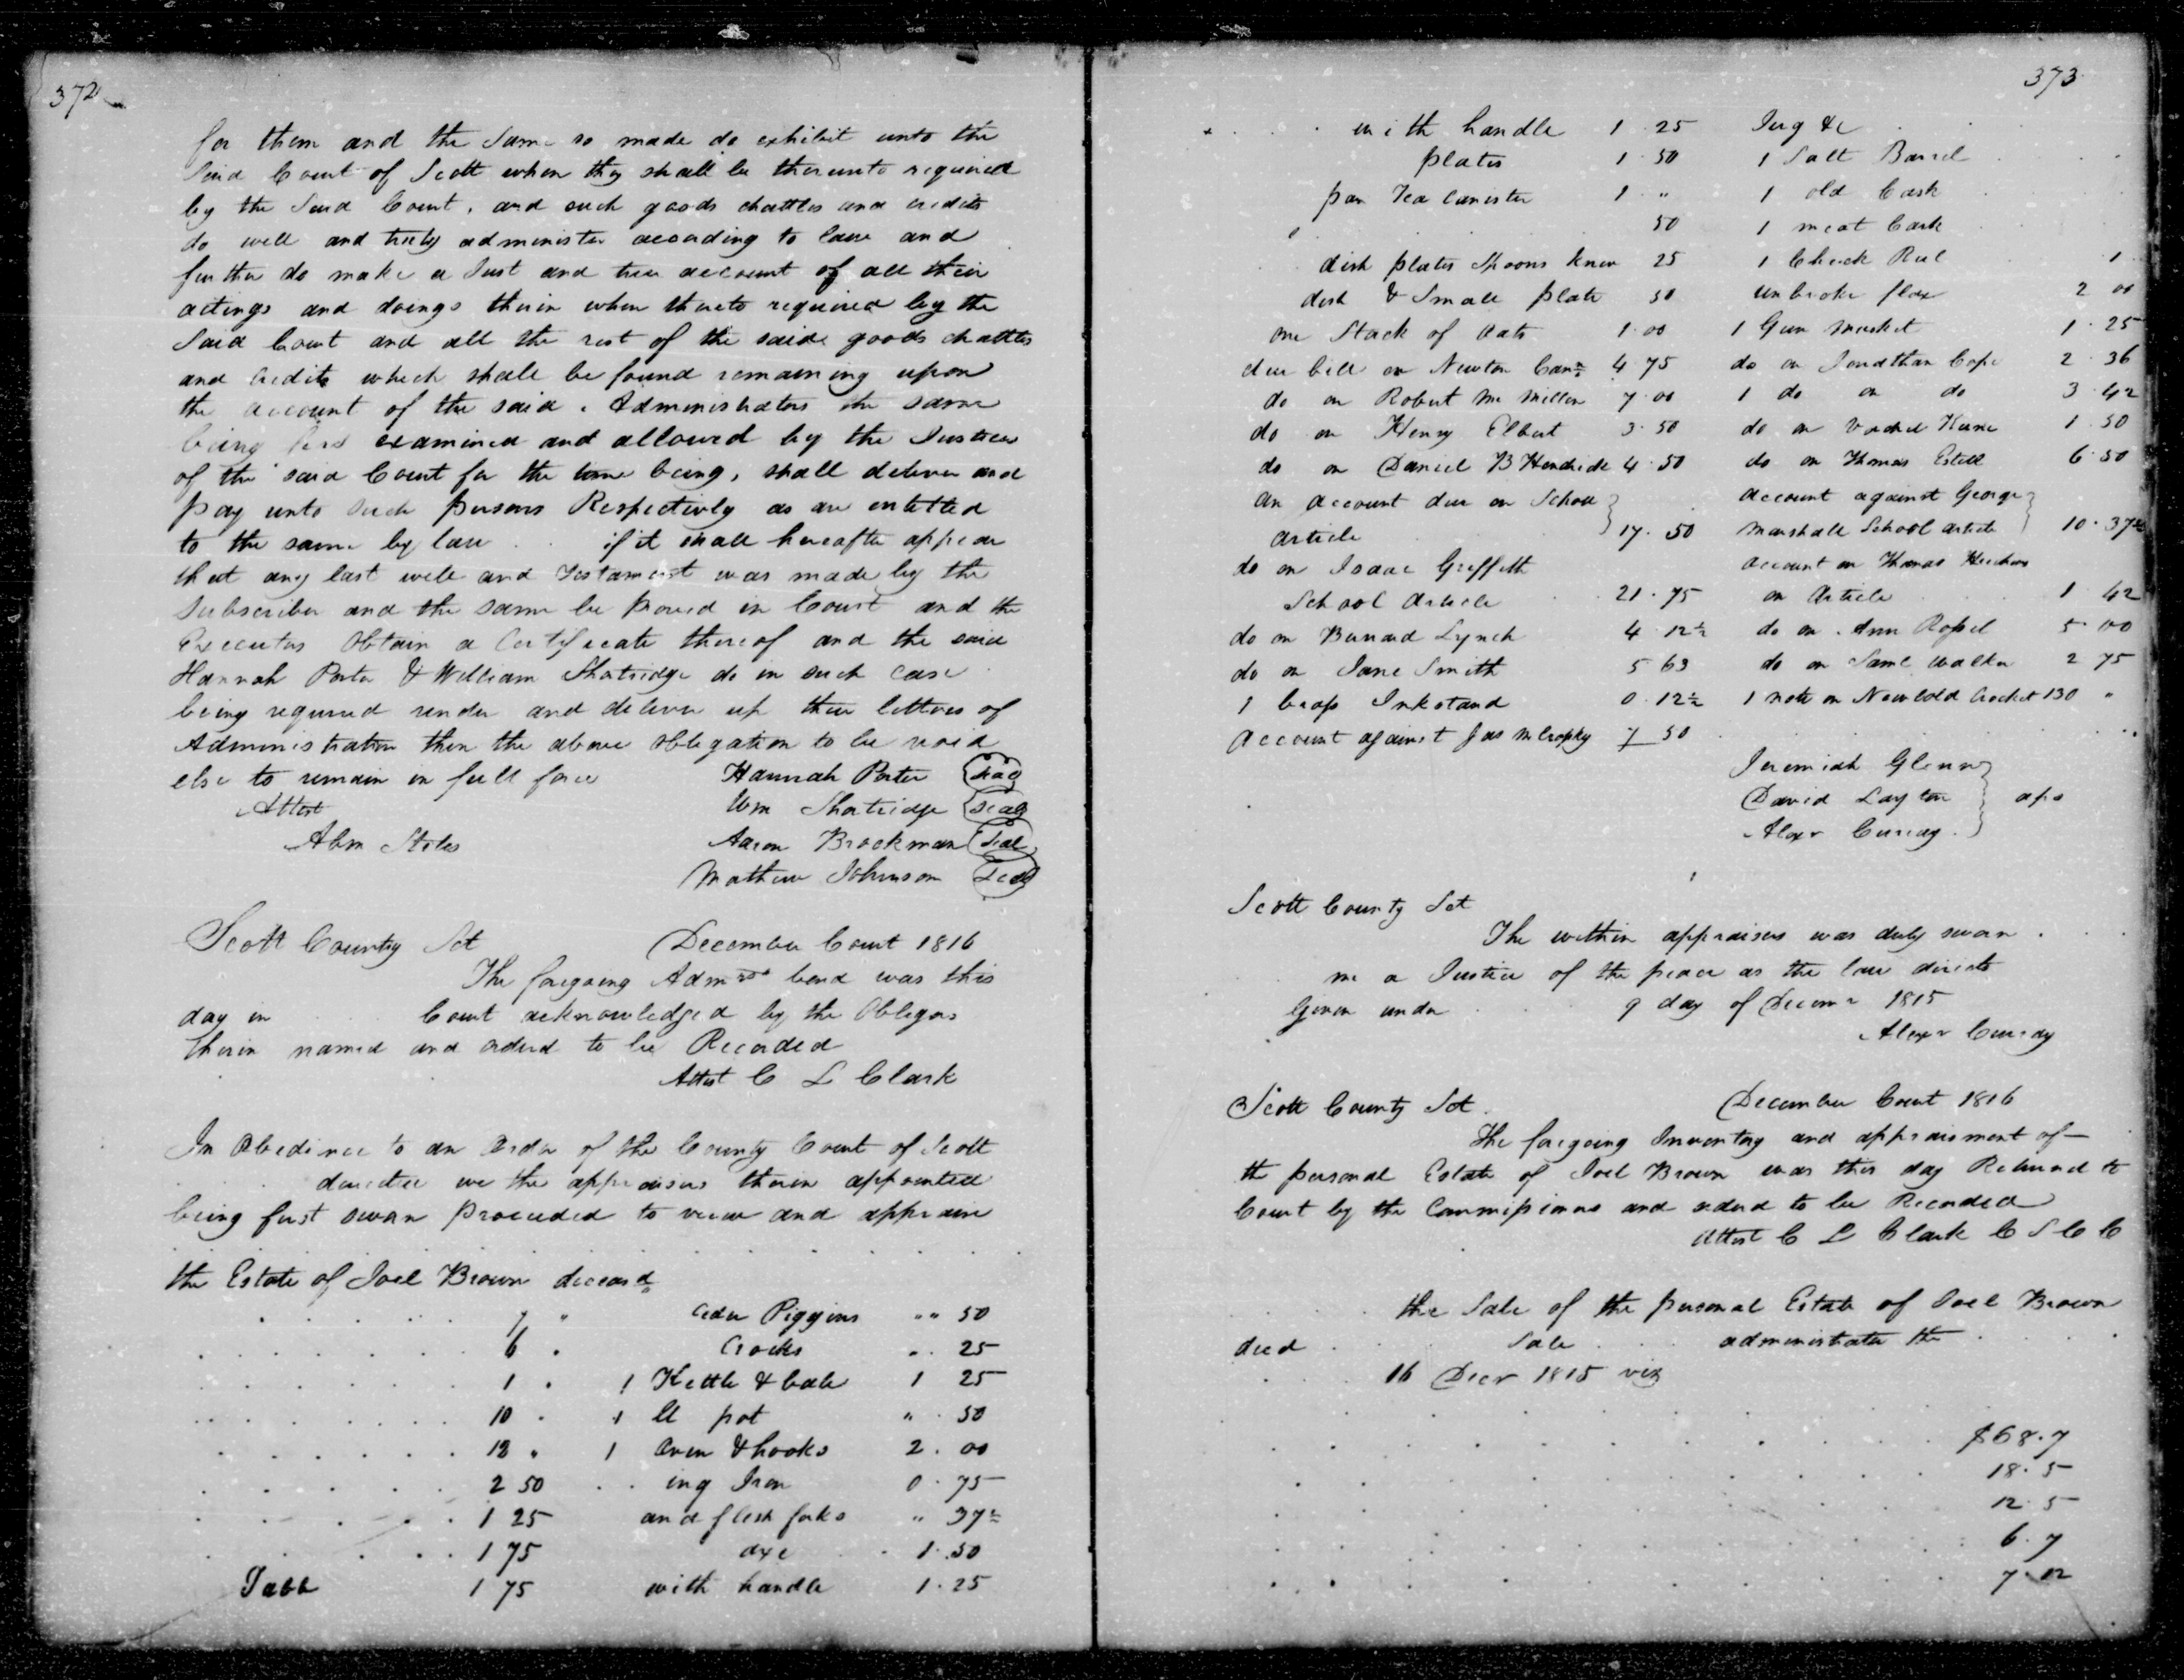 372
for them and the Same so made do exhibit unto the
Said Court of Scott when they shall be thereunto required
by the Said Court, and such goods chattles and credits
do well and truly administer according to law and
further do make a Just and true account of all their
actings and doings therein when thereto required by the
Said Court and all the rest of the saide goods chattles
and Credits which shall be found remaining upon
the account of the said Administrators the same
being first examined and allowed by the Justices
of the said Court for the time being, shall deliver and
pay unto such persons Respectively as are entitled
to the same by law . . if it shall hereafter appear
that any last will and Testament was made by the
Subscriber and the same be proved in Court and the
Executors Obtain a Certificate thereof and the said
Hannah Porter & William Shatridge do in such case
being required render and deliver up their letters of
Administration then the above obligation to be void
else to remain in full force Hannah Porter Seal
Attest Wm Shatridge Seal
Abm Stiles Aaron Brockman Seal
Mathew Johnson Seal
Scott County Sct December Court 1816
The foregoing Admrs bond was this
day in Court acknowledged by the Obligors
therein named and orderd to be Recorded
Attest C L Clark
In Obedience to an Order of the County Court of Scott
we the appraisers therein appointed
being first sworn Proceeded to view and appraise
the Estate of Joel Brown deceasd
7 " Ceder Piggins " " 50
6 . Crocks . . 25
1 . 1 Kettle & bale 1 25
10 . 1 pot " . 50
12 " 1 Oven & hooks 2 . 00
2 50 . . ing Iron 0 . 75
1 25 and flesh forks " 37½
1 75 axe 1 . 50
Tabb 1 75 with handle 1 . 25
373
with handle 1 . 25 Jug &c
plates 1 . 50 1 Salt Barrel
pan Tea Canister 1 " 1 old Cask
50 1 meat Cask
dish plates Spoons knive 25 1 Check Reel 1
dish & Small plate 50 unbroke flax 2 00
one Stack of Oats 1 . 00 1 Gun musket 1 . 25
due bill on Newton Cann 4 75 do on Jonathan Cope 2 . 36
do on Robert Mc Millen 7 . 00 1 do on do 3 . 42
do on Henry Elbert 3 . 50 do on Keene 1 . 50
do on Daniel B Hendrick 4 . 50 do on Thomas Estill 6 . 50
an account due on School account against George
article 17 . 50 Marshall School article 10 . 37½
do on Isaac Griffith account on Thomas
School Article 21 . 75 on Article 1 42
do on Barnard Lynch 4 12½ do on Ann 5 00
do on Jane Smith 5 63 do on Saml Walker 2 75
1 brass Inkstand 0 . 12½ 1 note on Newbold Crocket 130 "
Account against Jas 7 50
Jeremiah Glenn
David Layton aps
Alexr Curray
Scott County Sct
The within appraisers was duly sworn
me a Justice of the peace as the law directs
Given under 9 day of Decemr 1815
Alexr Curray
Scott County Sct December Court 1816
The foregoing Inventory and appraisment of
th personal Estate of Joel Brown was this day Returned to
Court by the Commissioners and orderd to be Recorded
Attest C L Clark C S C C
the Sale of the personal Estate of Joel Brown
decd Sale administrator the
16 Decr 1815 viz
$68 . 7
18 . 5
12 5
6 . 7
7 . 12